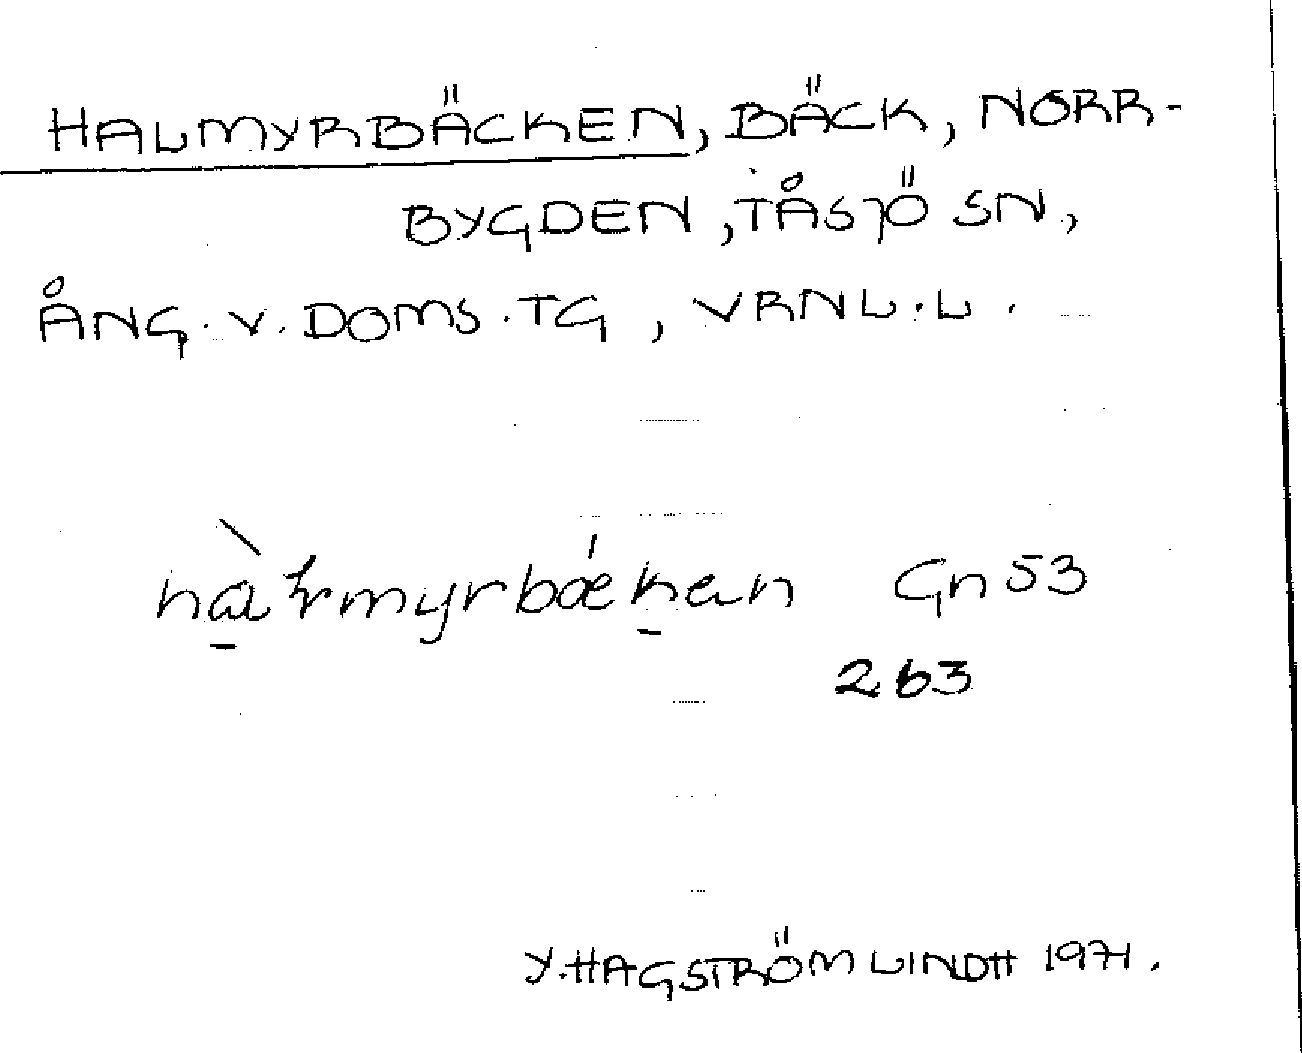 HALMYRBÄCKEN, BÄCK, NORR-
BYGDEN, TÅSJÖ SN.,
ÅNG. V. DOMS. TG, VRNL. L.
Gn 53
263
Y. HAGSTRÖM LINDH 1971.